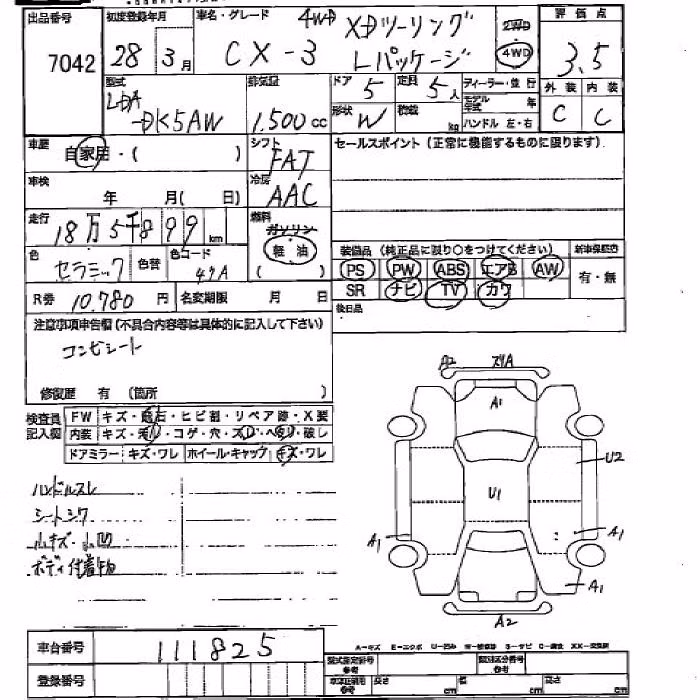 出品番号 初度登録年月 車名・グレード 4WD XDツーリング 2WD 評価点
7042 28年 3月 CX-3 Lパッケージ 4WD 3.5
型式 排気量 ドア 5 定員 5人 ディーラー・並行 外装 内装
LDA-DK5AW 1.500cc 形状 W 積載 kg モデル年式 年 ハンドル 左・右 C C
車歴 自家用・( ) シフト FAT セールスポイント (正常に機能するものに限ります)
車検 年 月( 日) 冷房 AAC
走行 18万5千899km 燃料 ガソリン 軽油 ( )
色 セラミック 色替 色コード 47A 装備品 (純正品に限り○をつけてください) 新車保証書
PS PW ABS エアB AW 有・無
R券 10.780円 名変期限 月 日 SR ナビ TV カワ
注意事項申告欄 (不具合内容等は具体的に記入して下さい) 後日品
コンビシート
修復歴 有 (箇所 )
検査員記入欄 FW キズ・飛石・ヒビ割・リペア跡・X要
内装 キズ・汚れ・コゲ・穴・スレ・ヘタリ・破し
ドアミラー キズ・ワレ ホイール・キャップ キズ・ワレ
ハンドルスレ
シートシワ
小キズ・小凹
ボディ付着物
A2 ズリA
A1
U2
U1
A1 A1
A1
A2
車台番号 111825
A-キズ E-エクボ U-凹み W-補修跡 S-サビ C-腐食 XX-交換済
登録番号 型式指定番号 参考 類別区分番号 参考
長さ cm 幅 cm 高さ cm